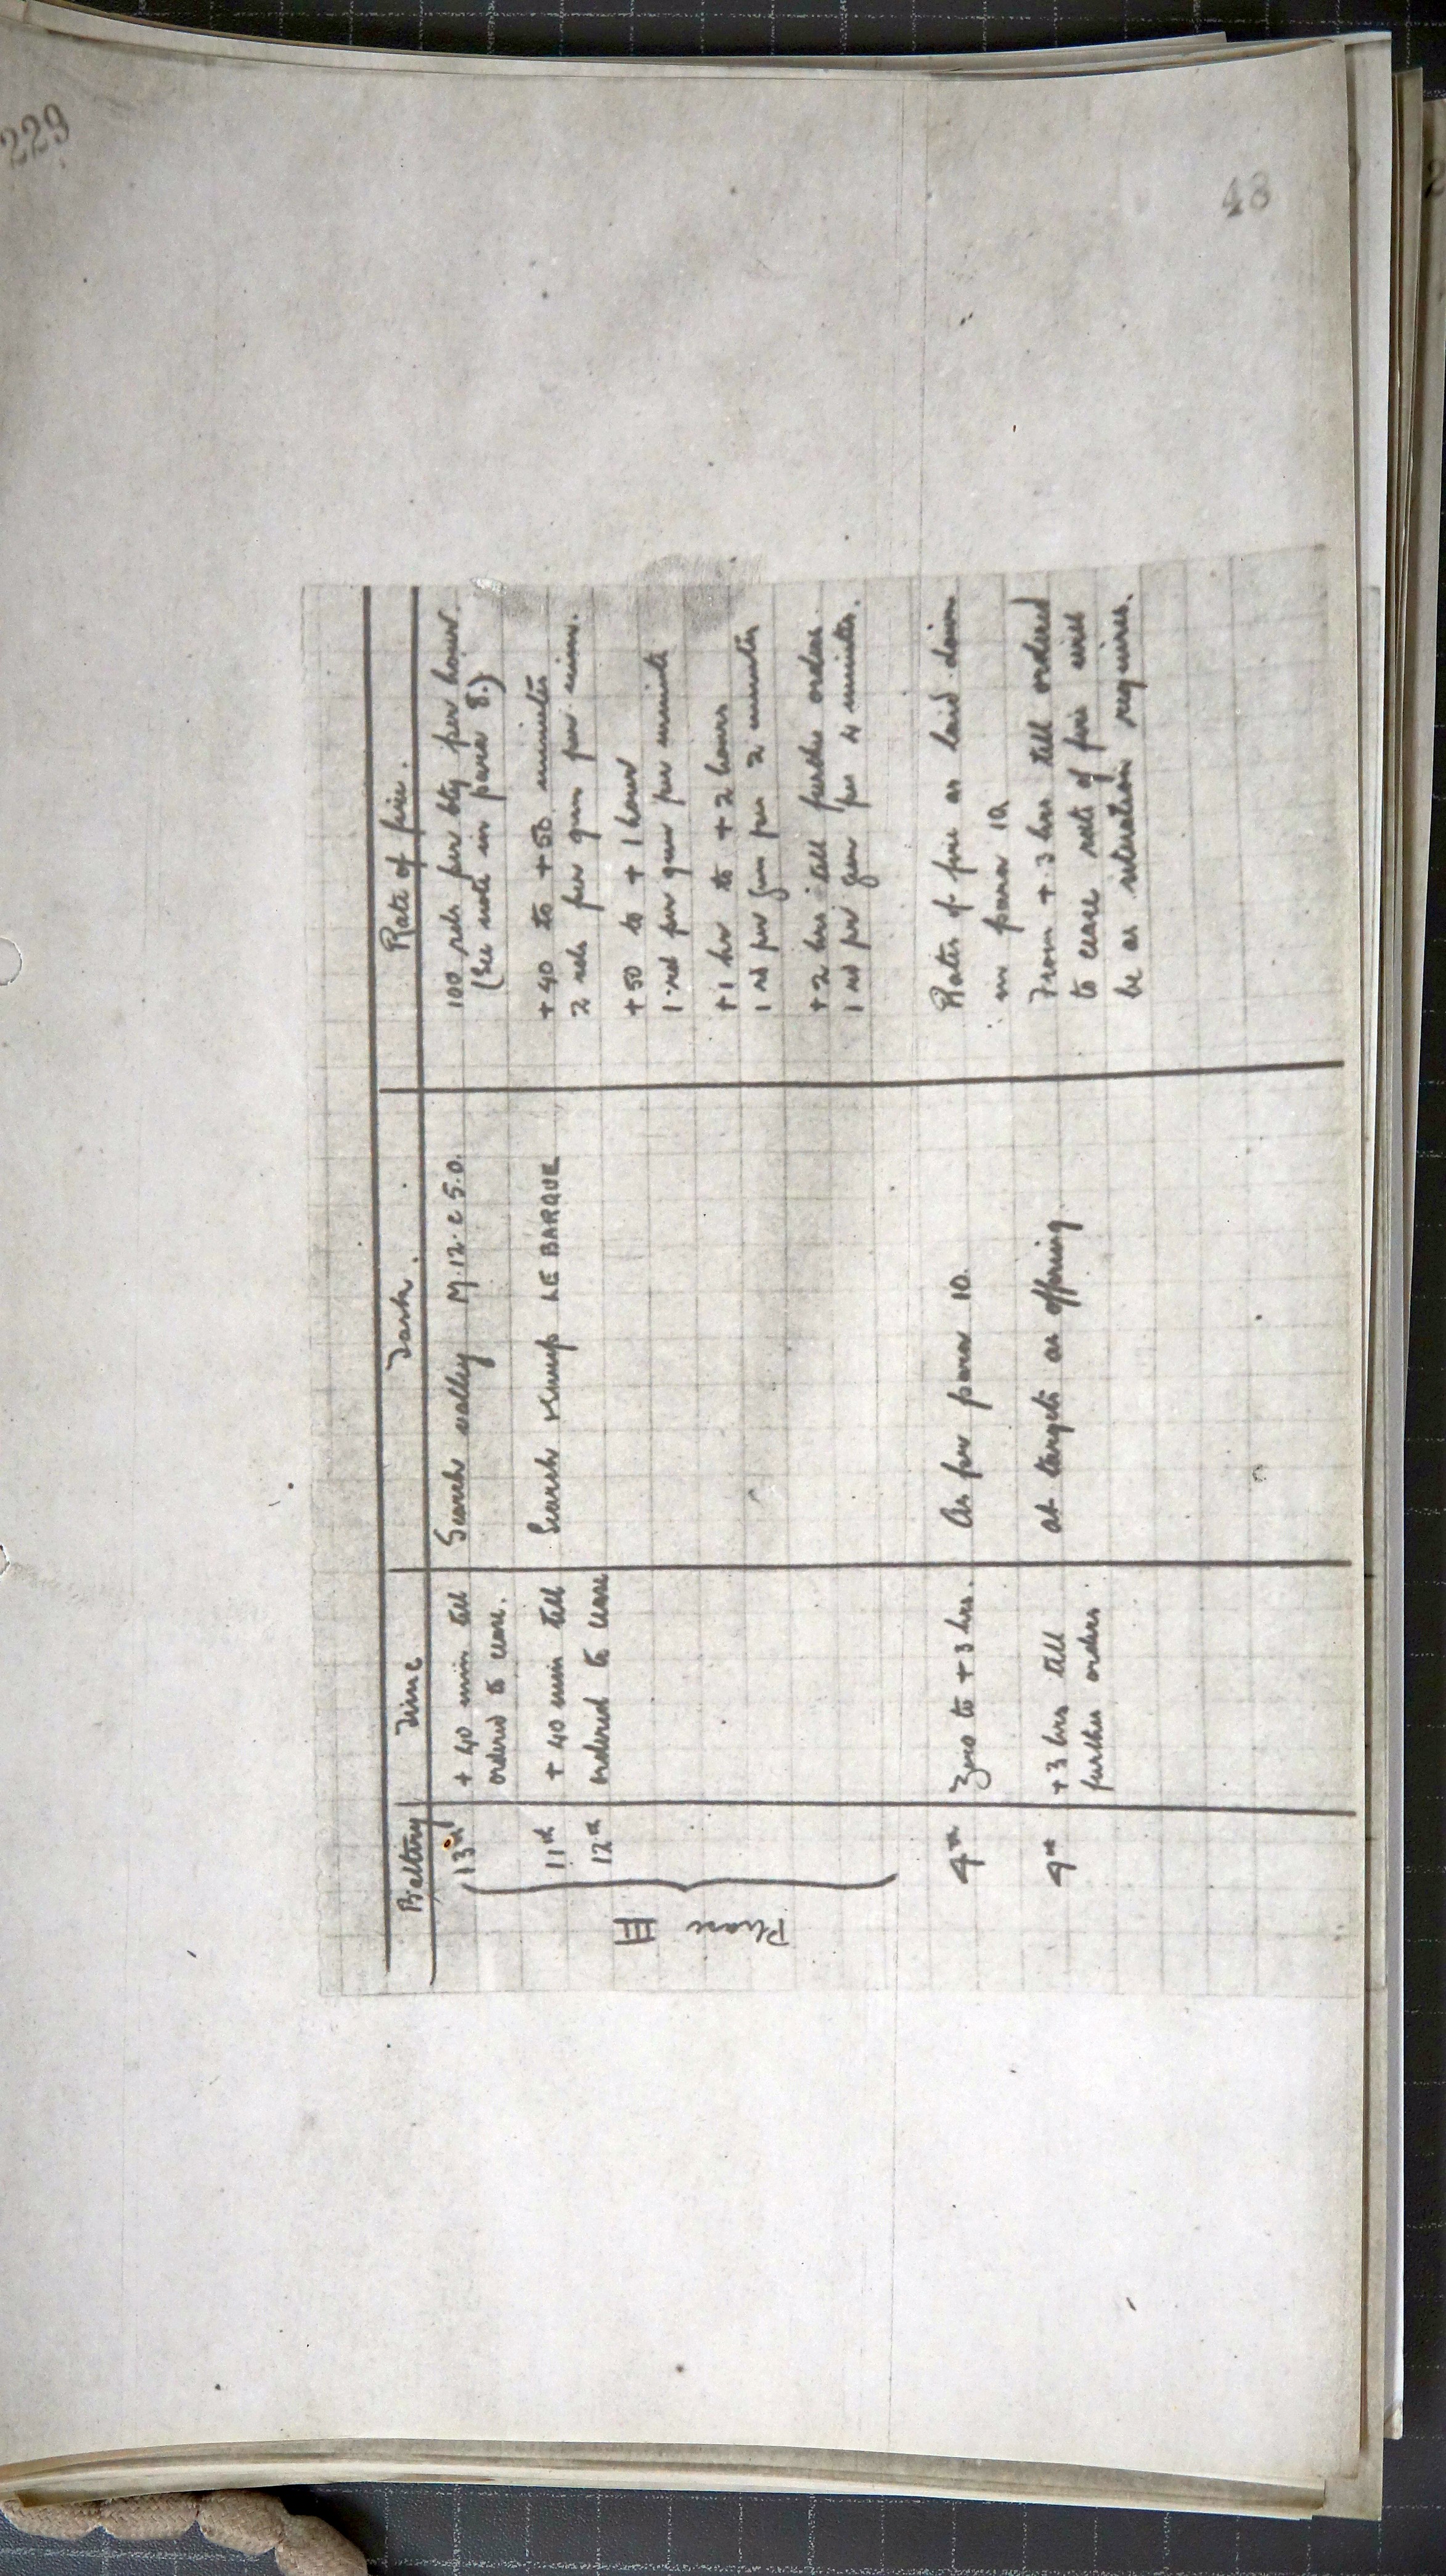 229
48
Battery Time Task. Rate of fire.
13th + 40 min till Search valley M.12.c.5.0. 100 rds per bty per hour.
ordered to cease. (See note in para 8.)
11th + 40 min till Search Knup LE BARQUE + 40 to + 50 minutes
12th ordered to cease 2 rds per gun per min.
+ 50 to + 1 hour
1 rd per gun per minute
+ 1 hr to + 2 hours
1 rd per gun per 2 minutes
+ 2 hrs till further orders
1 rd per gun per 4 minutes.
Phase III
4th Zero to + 3 hrs. As per para 10. Rates of fire as laid down
in para 10
9th + 3 hrs till at targets as offering From + 3 hrs till ordered
further orders. to cease rate of fire will
be as situation requires.